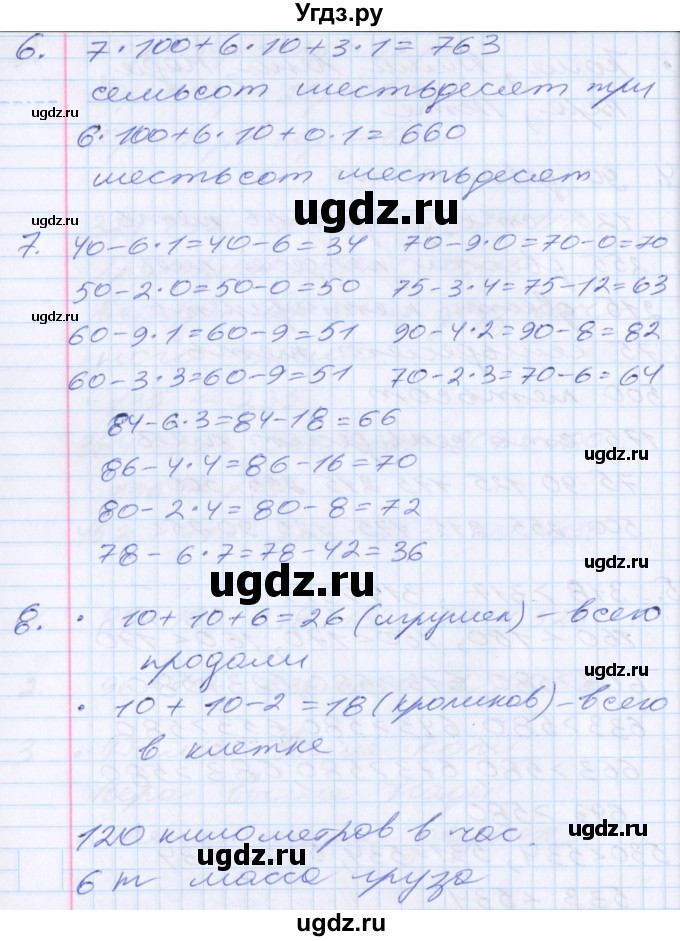 Угдз.ру
6. 7·100+6·10+3·1=763
семьсот шестьдесят три
ugdz.ru ugdz.ru
6·100+6·10+0·1=660
шестьсот шестьдесят
ugdz.ru
ugdz.ru
7. 40-6·1=40-6=34 70-9·0=70-0=70
50-2·0=50-0=50 75-3·4=75-12=63
ugdz.ru ugdz.ru
60-9·1=60-9=51 90-4·2=90-8=82
60-3·3=60-9=51 70-2·3=70-6=64
84-6·3=84-18=66
86-4·4=86-16=70
ugdz.ru
80-2·4=80-8=72
78-6·7=78-42=36
ugdz.ru
ugdz.ru
8. · 10+10+6=26 (игрушек) – всего
продали
ugdz.ru
· 10+10-2=18 (кроликов) – всего
в клетке
120 километров в час.
ugdz.ru ugdz.ru
6 т масса груза
ugdz.ru